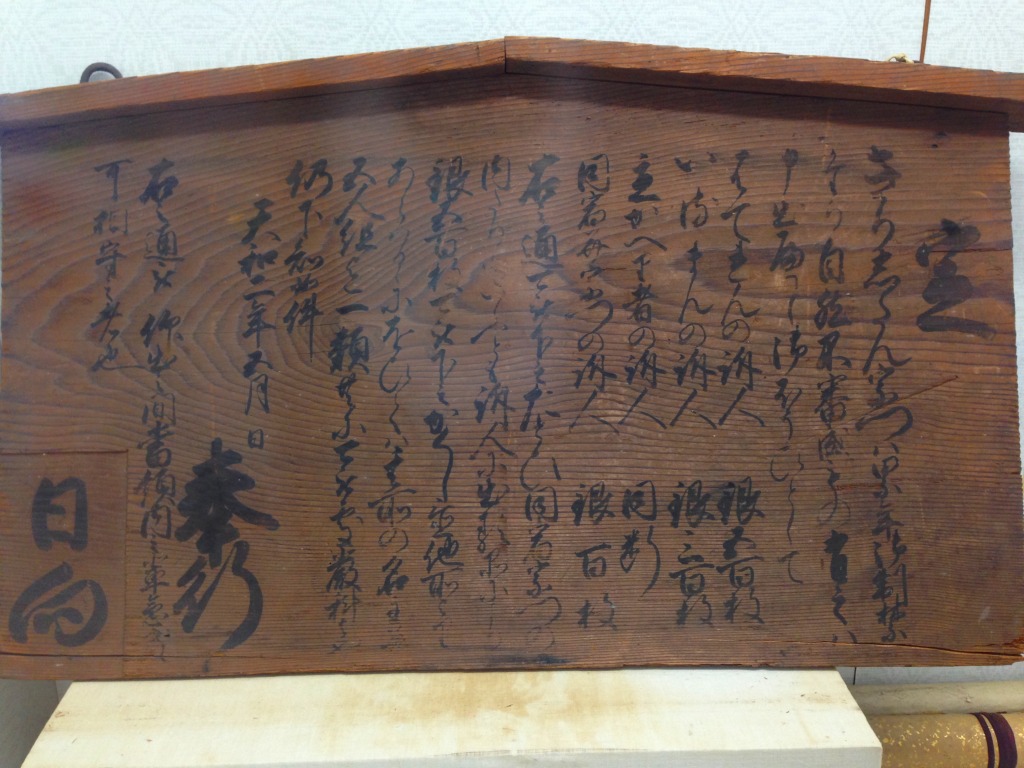 定
きりしたん宗門ハ累年御制禁
たり自然不審成もの有之ハ
申出へし御ほうひとして
はてれんの訴人　銀五百枚
いるまんの訴人　銀三百枚
立かへり者の訴人　同断
同宿并宗門の訴人　銀百枚
右之通可被下之たとひ同宿宗門の
内たりといふとも訴人に出る品により
銀五百枚可被下之かくし置他所より
あらはるゝにおひてハ其所の名主并
五人組迄一類共に可被処厳科者也
仍下知如件
天和二年五月日
奉行
右之通被仰出之間領内之輩
可相守之者也
日向